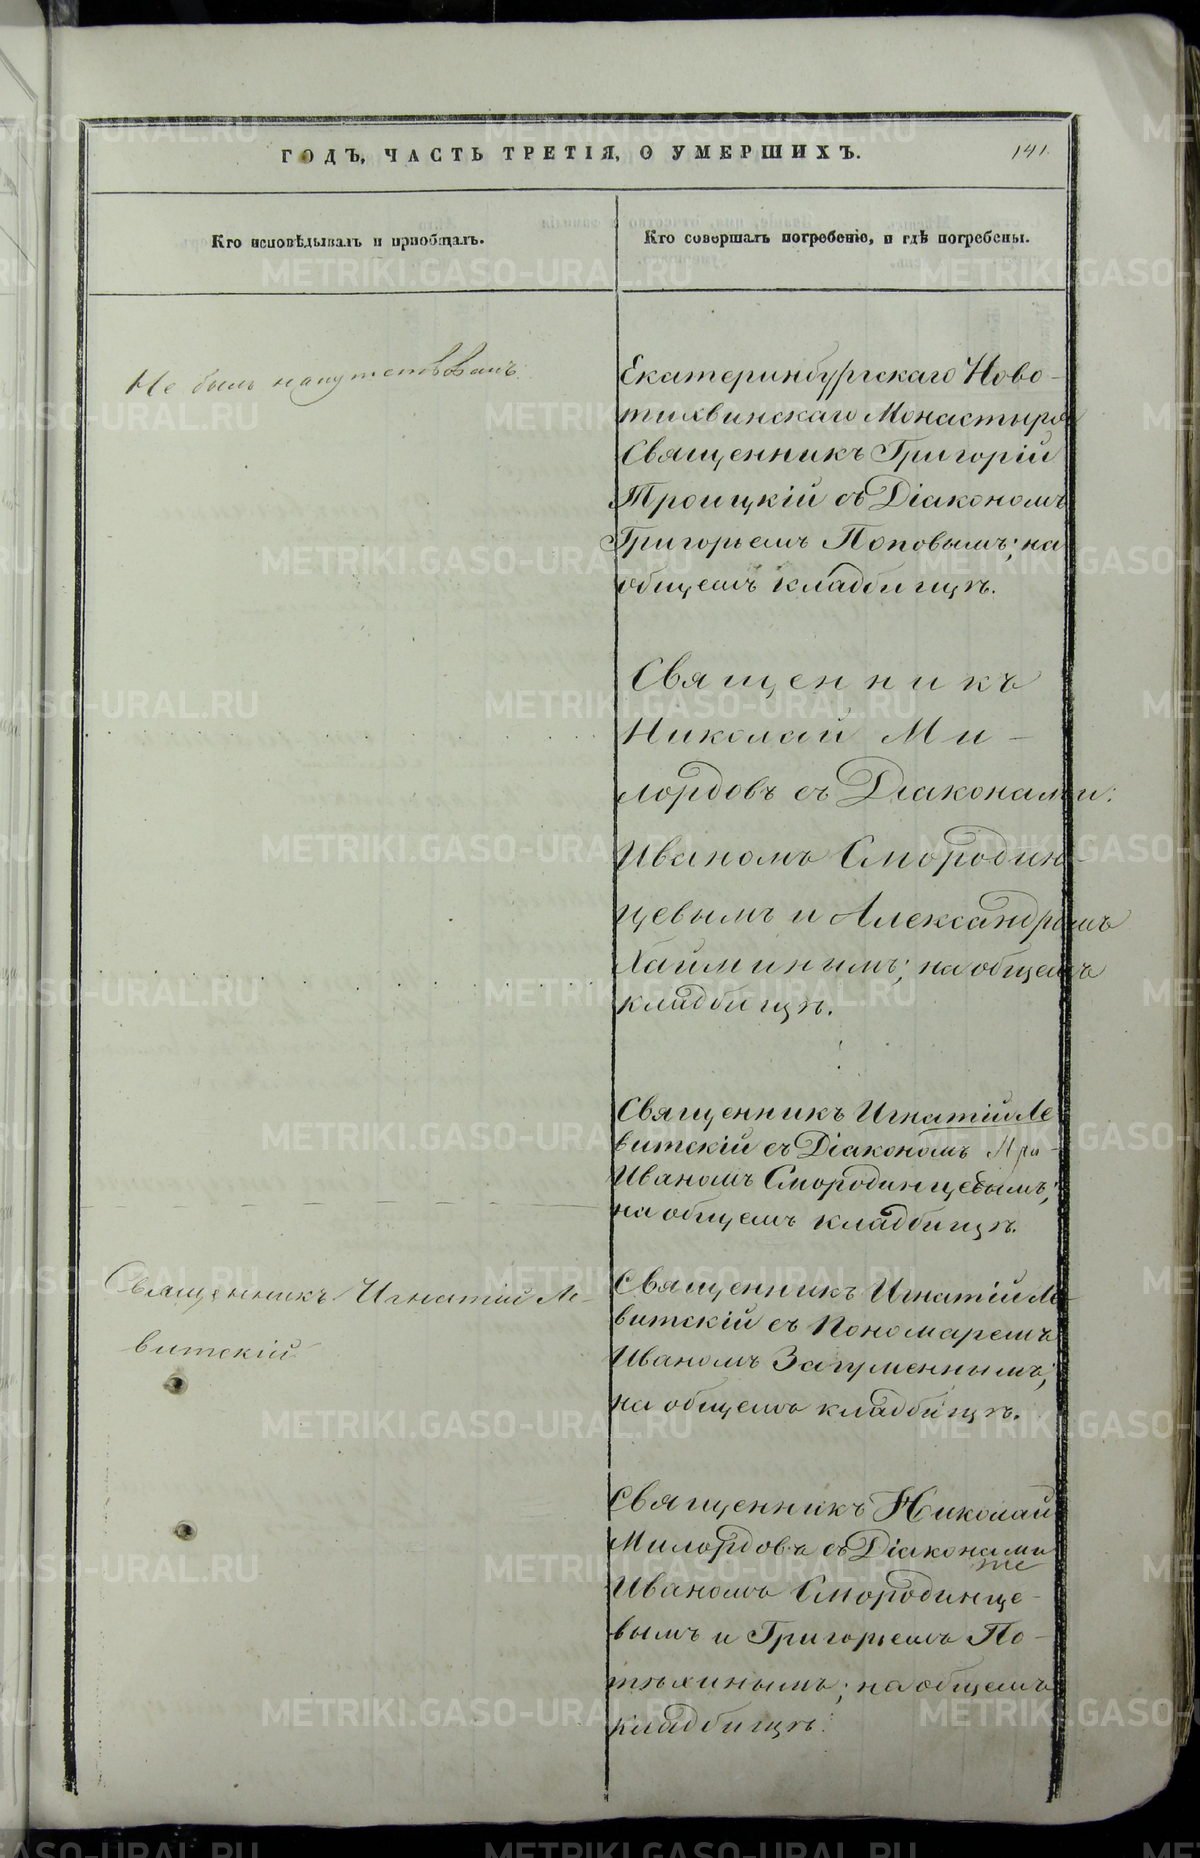 ГОДЪ, ЧАСТЬ ТРЕТІЯ, О УМЕРШИХЪ.
141.
Кто исповѣдывалъ и пріобщалъ.
Кто совершалъ погребеніе, и гдѣ погребены.
Не былъ напутствованъ.
Екатеринбургскаго Ново-
тихвинскаго Монастыря
Священникъ Григорій
Троицкій съ Діакономъ
Григорьемъ Поповымъ; на
общемъ кладбищѣ.
Священникъ
Николай Ми-
лордовъ съ Діаконами:
Иваномъ Смородин-
цевымъ и Александромъ
Хайминымъ; на общемъ
кладбищѣ.
Священникъ Игнатій Ле
витскій съ Діакономъ
Иваномъ Смородинцевымъ;
на общемъ кладбищѣ.
Священникъ Игнатій Ле-
витскій
Священникъ Игнатій Ле-
витскій съ Пономаремъ
Иваномъ Загуменнымъ;
на общемъ кладбищѣ.
Священникъ Николай
Милордовъ съ Діаконами
Иваномъ Смородинце-
вымъ и Григорьемъ По-
тѣхинымъ; на общемъ
кладбищѣ.
METRIKI.GASO-URAL.RU